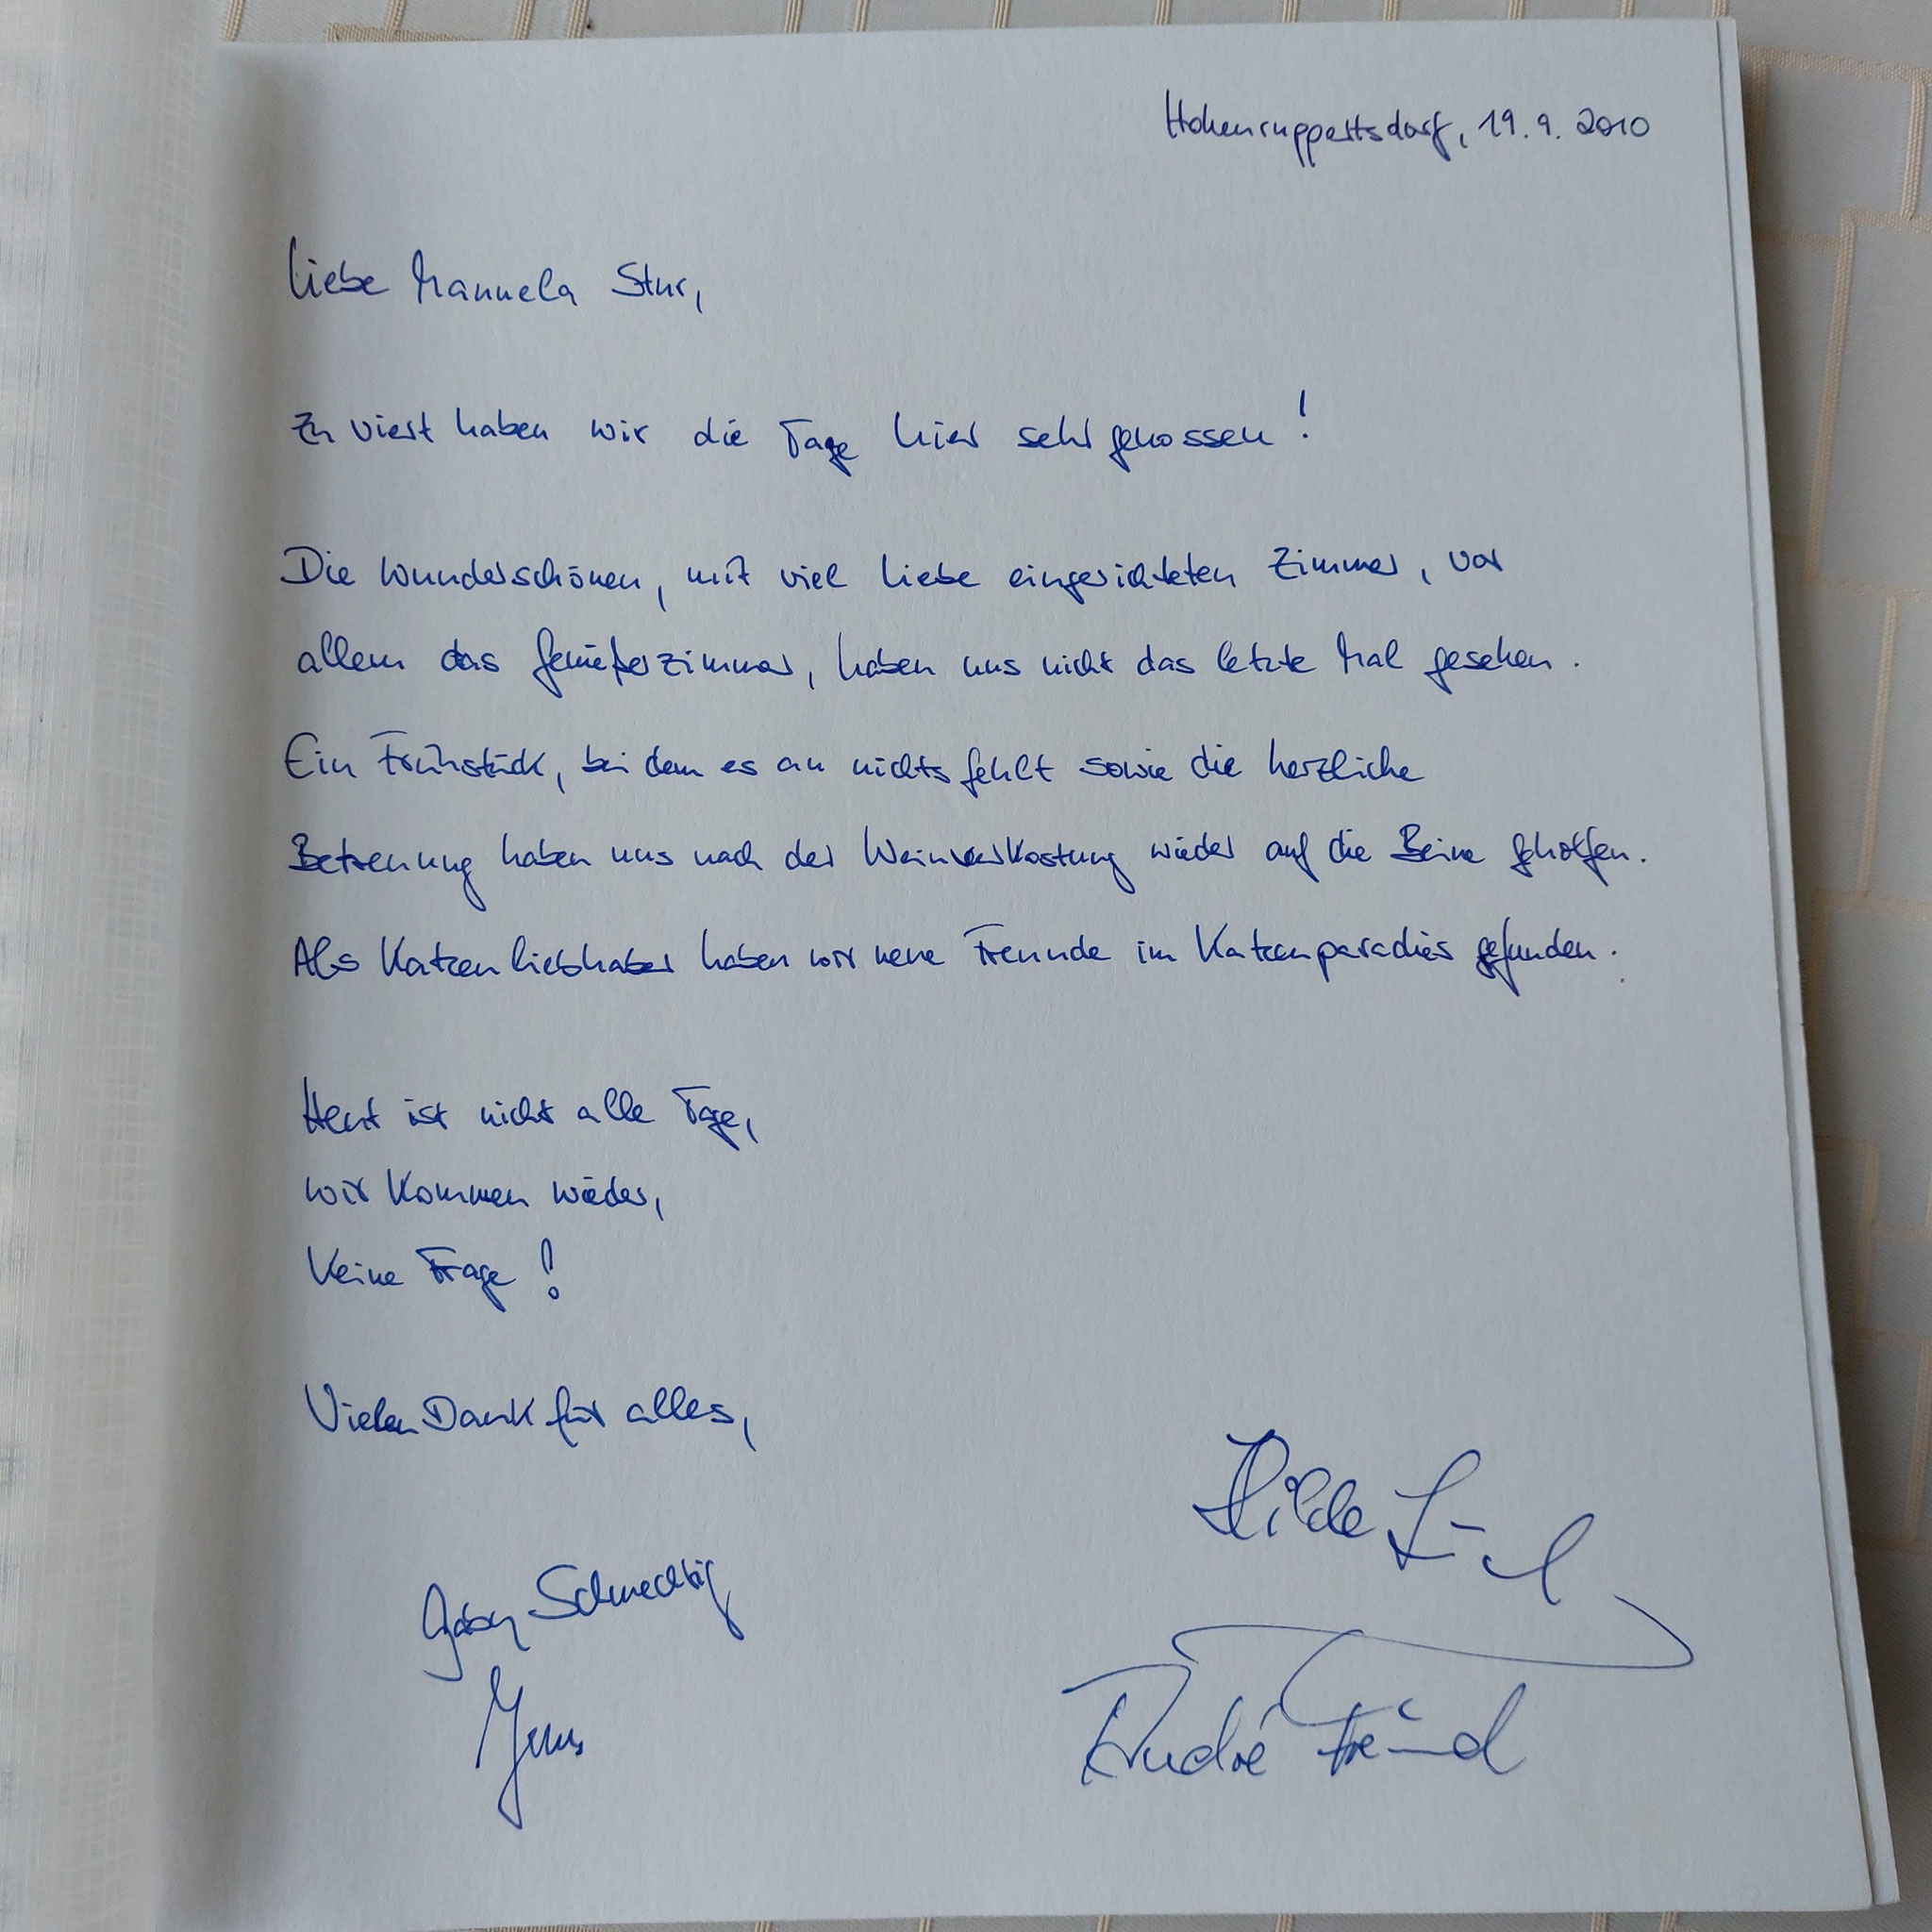 Hohenruppertsdorf, 19.9.2010
Liebe Manuela Stur,
Zu viert haben wir die Tage hier sehr genossen!
Die wunderschönen, mit viel Liebe eingerichteten Zimmer, vor
allem das Genießerzimmer, haben uns nicht das letzte Mal gesehen.
Ein Frühstück, bei dem es an nichts fehlt sowie die herzliche
Betreuung haben uns nach der Weinverkostung wieder auf die Beine geholfen.
Als Katzenliebhaber haben wir neue Freunde im Katzenparadies gefunden.
Heut ist nicht alle Tage,
wir kommen wieder,
keine Frage!
Vielen Dank für alles,
Hilde
Gaby
André